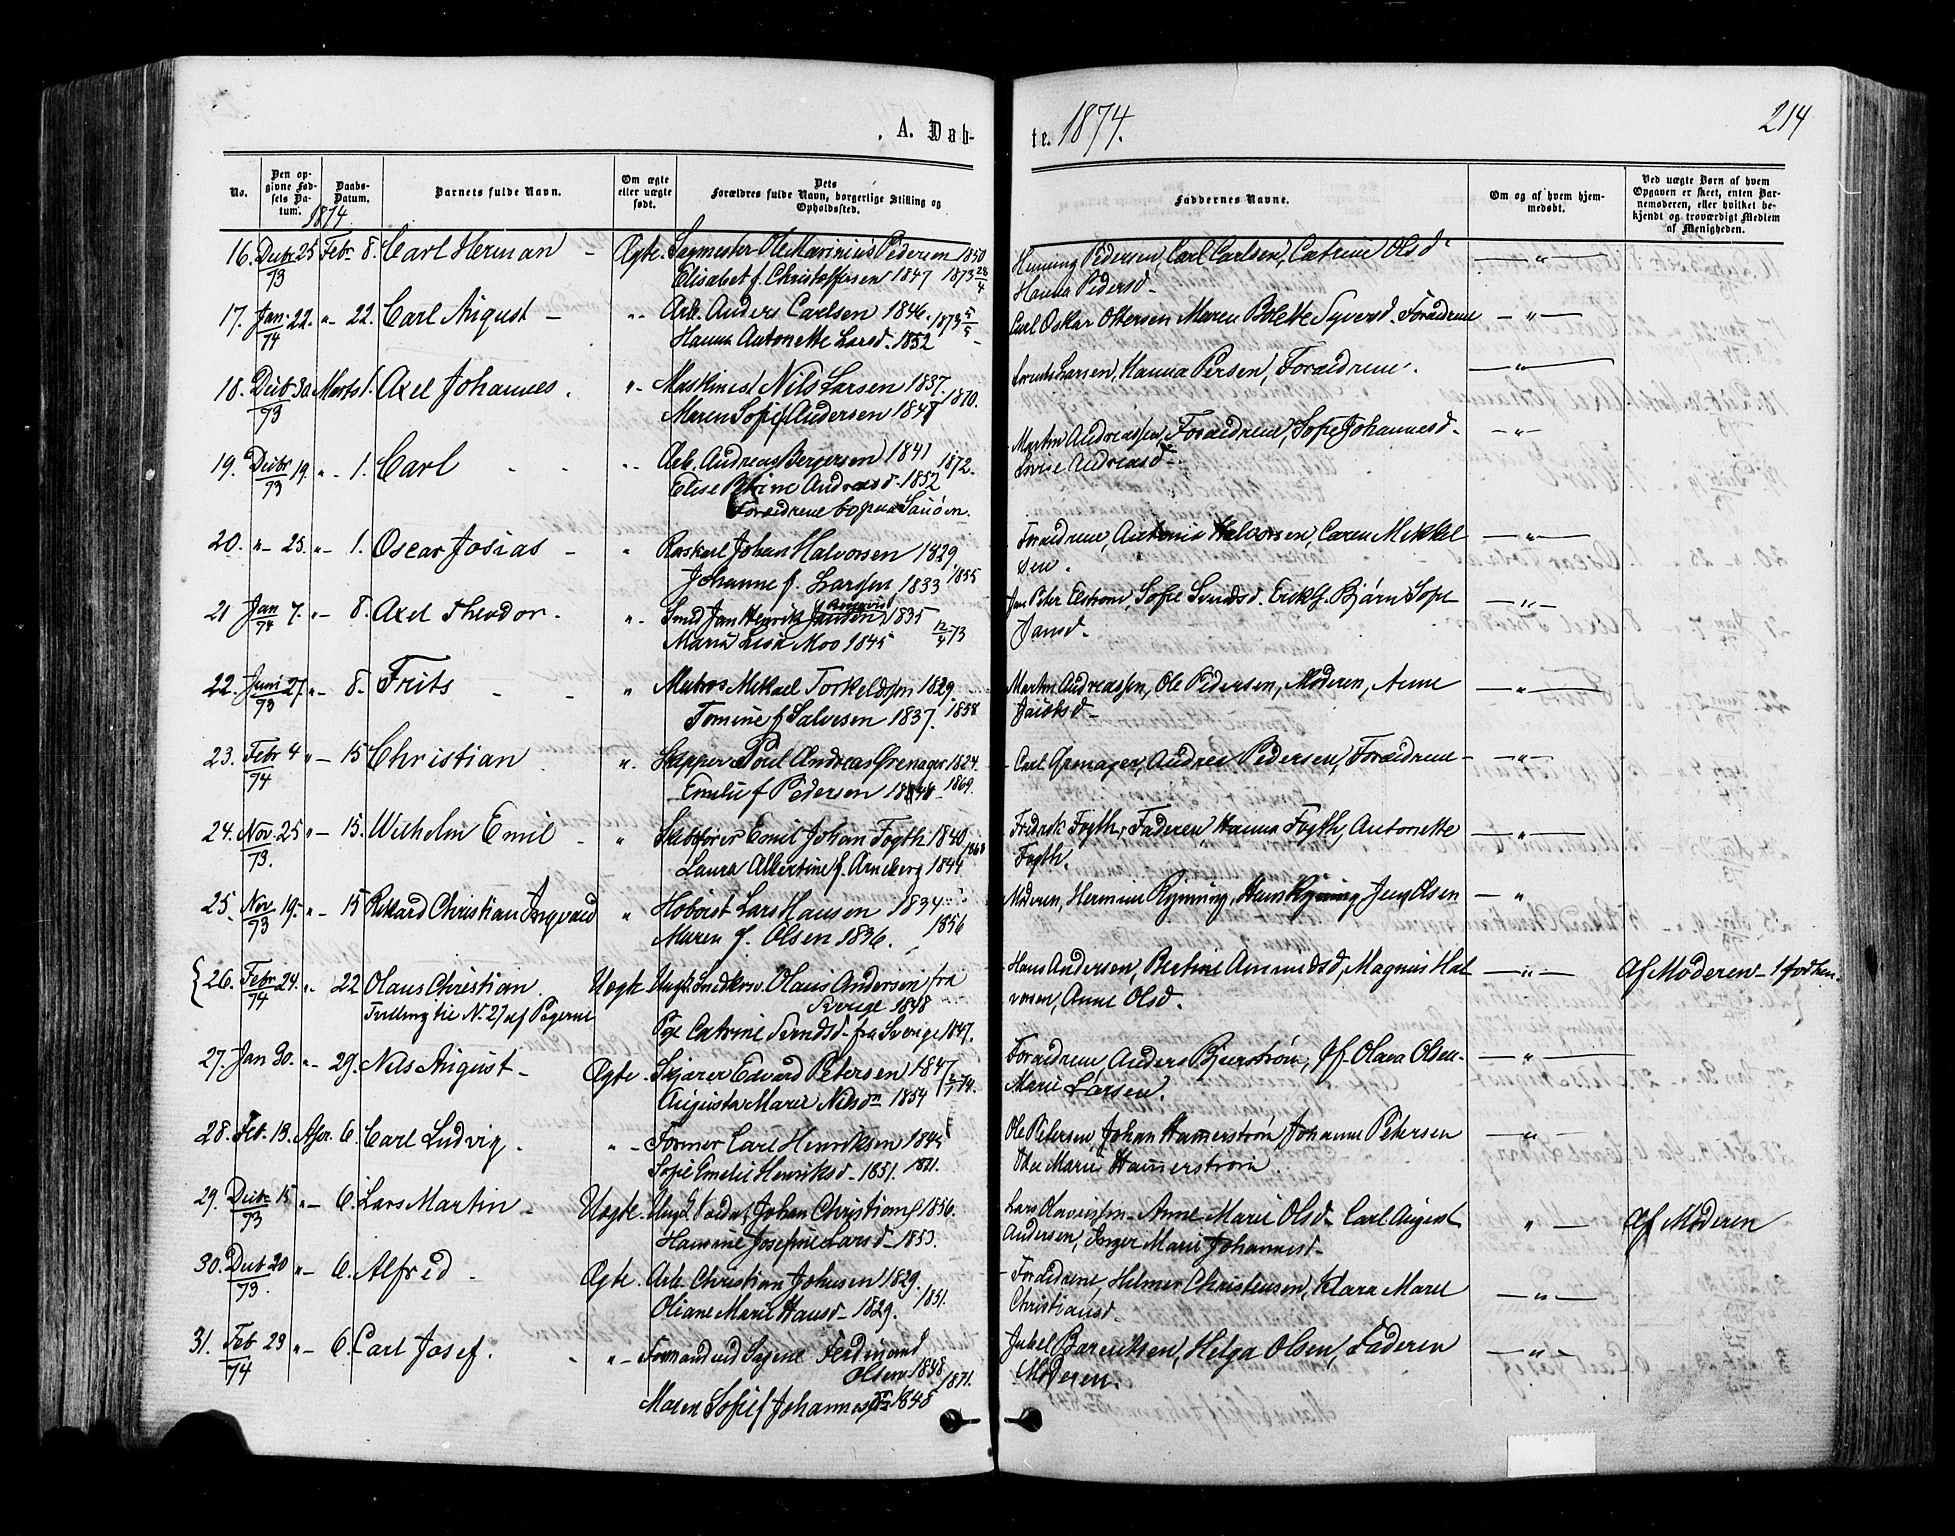 A. Døb-
te. 1874.
214
No.
Den op-
givne Fød-
sels Da-
tum.
1874
Daabs-
Datum.
Barnets fulde Navn.
Om ægte
eller uægte
født.
Dets
Forældres fulde Navn, borgerlige Stilling og
Opholdssted.
Faddernes Navne.
Om og af hvem hjem-
medøbt.
Ved uægte Børn af hvem
Opgaven er skeet, enten Bar-
nemoderen, eller hvilket be-
kjendt og troværdigt Medlem
af Menigheden.
16. Decbr 25 Febr 8. Carl Herman - Ægte. Sagmester Ole Marinius Pedersen 1850 Henning Pedersen, Carl Carlsen, Catrine Olsd
73 Elisabet f. Christoffersen 1847 1873 28/4 Hanna Pedersd -
17. Jan 22. " - 22. Carl August - " Arb. Anders Carlsen 1846. 1873 5/5 Carl Oskar Ottersen Maren Bolette Syversd. Foræidrene
74 Hanna Antonette Larsd. 1852
18. Decb 30. Marts 1. Axel Johannes. " Maskinist Nils Larsen 1837. 1870. Larsen, Hanna Persen, Foræidrene.
73 Maren Sofie f Andersen 1847
19. Decbr 19. " - 1. Carl " Arb. Andreas Bergersen 1841 1872. Martin Andreassen, Foræidrene, Sofie Johannesd.
73 Elise Petrine Andreasd. 1852 Lovise Andreasd -
Foræidrene bo paa Sanøen.
20. " - 25. " - 1. Oscar Josias - " Johan Halvorsen 1829 Foræidrene, Antonie Halvorsen, Caren Mikkel
Johanne f. Larsen 1833 1855 sen.
21 Jan 7. " - 8. Axel Theodor. " Smed Jan Henrik Jansen 1835 12/4 73 Jan Peter Elstrøm, Sofie Svendsd. Erik G. Bjørn Sofie
74 Maria Lisa Moo 1845 Jansd.
22. Juni 27. " - 8. Frits - " Matros Mikael Torkeldsen 1829. Martin Andreassen, Ole Pedersen, Moderen, Anne
73 Tomine f Salvesen 1837. 1858 Jakobsd -
23. Febr 4 " - 15 Christian " Skipper Poul Andreas Grenager 1824. Carl Grenager, Andrea Pedersen, Foræidrene -
74 Emilie f Pedersen 1848 1869.
24. Nov 25 " - 15. Wilhelm Emil - " Skibsfører Emil Johan Fogth 1840 Fredrik Fogth, Faderen, Hanna Fogth, Antonette
73. Laura Albertine f. Arneberg 1844 Fogth.
25. Nov 19. " - 15 Rikard Christian Ingvald " Hoboist Lars Hansen 1834 Moderen, Hermine Rynning, Hans Rynning, Jens Olsen
73 Maren f. Olsen 1836. 1856
26. Febr 24. " - 22 Olaus Christian. Uægte Ungk. Snedkersv. Olaus Andersen fra Hans Andersen, Bertine Amundsd, Magnus Hal Af Moderen - 1 fødsen.
74 Tvilling til N. 27 af Pigerne Sverige 1848 vorsen, Anne Olsd.
Pge Catrine Svendsd - fra Sverige 1847.
27. Jan 30. " - 29. Nils August - Ægte. Skjærer Edvard Petersen 1847 Foræidrene, Anders Bjerstrøm, Jf. Olava Olsen -
Augusta Marie Nilsdn 1854 Marie Larsen.
28. Feb. 13. Apr. 6. Carl Ludvig. " - Former Carl Henriksen 1845 Ole Petersen, Johan Hammerstrøm Johanne Petersen
Sofie Emilie Henriksd - 1851. 1871. Thea Marie Hammerstrøm.
29. Decbr 15 " - 6. Lars Martin - Uægte. Ungk. Johan Christiansen 1856. Lars Olavessen - Anne Marie Olsd - Carl August Af Moderen
73 Hanine Josefine Larsd - 1853. Andersen, Inger Marie Johannesd -
30. Decb 20 " - 6. Alfred - Ægte Arb. Christian Johnsen 1829. Foræidrene, Hilmer Christensen, Klara Marie
73. Oliane Marie Hansd - 1829. 1851. Christiansd -
31. Feb 23 " - 6. Carl Josef. " - Formand ved Sagene Ferdinand Jakob Barentsen, Helga Olsen, Faderen
74 Olsen 1848 1871. Moderen.
Maren Sofie f Johannesdtr 1848